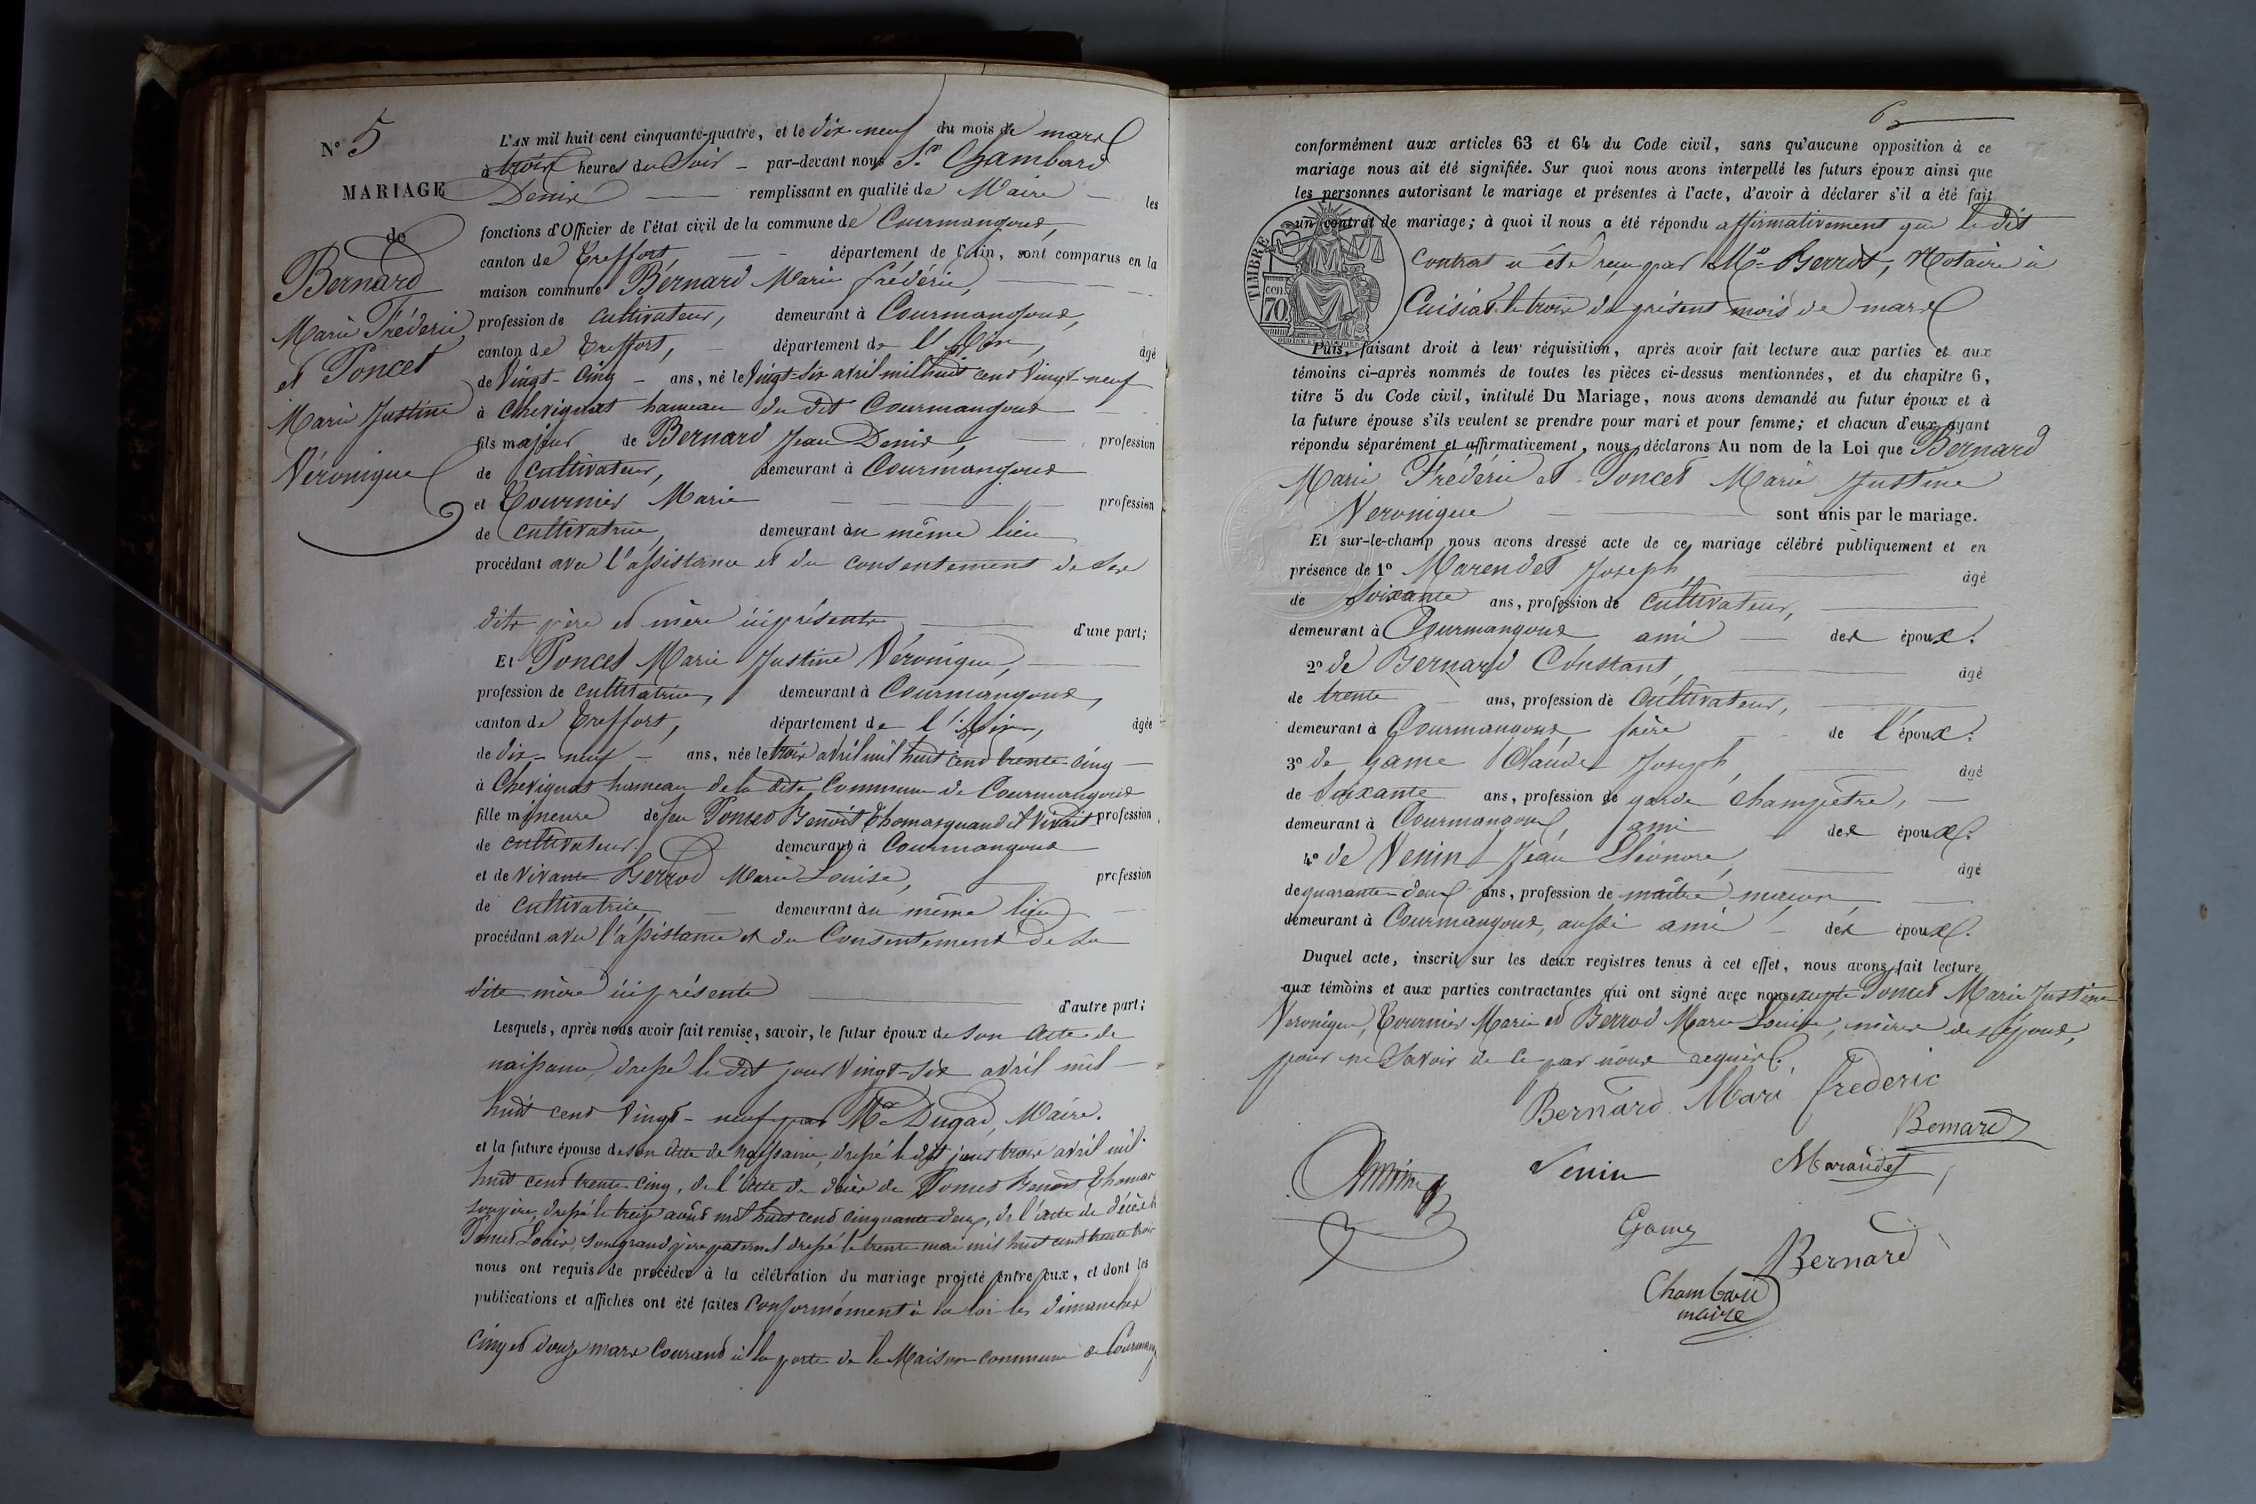 N° 5
MARIAGE
de
Bernard
Marie Fréderic
et Poncet
Marie Justine
Véronique
L'AN mil huit cent cinquante-quatre, et le dix-neuf du mois de mars
à trois heures du Soir - par-devant nous Sr. Chambard
Denis remplissant en qualité de Maire les
fonctions d'Officier de l'état civil de la commune de Courmangoux,
canton de Treffort, département de l'Ain, sont comparus en la
maison commune Bernard Marie frédéric,
profession de cultivateur, demeurant à Courmangoux,
canton de Treffort, département de l'Ain, âgé
de Vingt-Cinq ans, né le Vingt-six avril mil huit cent Vingt-neuf
à Chevignat hameau du dit Courmangoux
fils majeur de Bernard Jean Denis, profession
de cultivateur, demeurant à Courmangoux
et Tournier Marie profession
de cultivatrice, demeurant au même lieu
procédant avec l'assistance et du consentement de ses
dits père et mère ici présents d'une part;
Et Poncet Marie Justine Véronique,
profession de cultivatrice, demeurant à Courmangoux,
canton de Treffort, département de l'Ain, âgée
de dix-neuf ans, née le trois avril mil huit cent trente-cinq
à Chevignat hameau de la dite Commune de Courmangoux
fille mineure de feu Poncet Benoît Thomas quand il vivait profession
de cultivateur demeurant à Courmangoux
et de vivante Berrod Marie Louise, profession
de cultivatrice demeurant au même lieu
procédant avec l'assistance et du Consentement de sa
dite mère ici présente d'autre part;
Lesquels, après nous avoir fait remise, savoir, le futur époux de son acte de
naissance, dressé le dit jour Vingt-six avril mil
huit cent Vingt-neuf par Mr Dugad, Maire.
et la future épouse de son acte de naissance, dressé le dit jour trois avril mil
huit cent trente-cinq, de l'acte de décès de Poncet Benoît Thomas
son père, dressé le treize août mil huit cent cinquante-deux, de l'acte de décès de
Poncet Louis, son grand père paternel dressé le trente mai mil huit cent trente trois
nous ont requis de procéder à la célébration du mariage projeté entre eux, et dont les
publications et affiches ont été faites Conformément à la loi les dimanches
cinq et douze mars Courant à la porte de la Maison commune de Courmang
conformément aux articles 63 et 64 du Code civil, sans qu'aucune opposition à ce
mariage nous ait été signifiée. Sur quoi nous avons interpellé les futurs époux ainsi que
les personnes autorisant le mariage et présentes à l'acte, d'avoir à déclarer s'il a été fait
un contrat de mariage; à quoi il nous a été répondu affirmativement que le dit
contrat a été reçu par Me Berrod, Notaire à
Cuisiat le trois du présent mois de mars
TIMBRE
cen. 70
Puis, faisant droit à leur réquisition, après avoir fait lecture aux parties et aux
témoins ci-après nommés de toutes les pièces ci-dessus mentionnées, et du chapitre 6,
titre 5 du Code civil, intitulé Du Mariage, nous avons demandé au futur époux et à
la future épouse s'ils veulent se prendre pour mari et pour femme; et chacun d'eux ayant
répondu séparément et affirmativement, nous déclarons Au nom de la Loi que Bernard
Marie Fréderic et Poncet Marie Justine
Veronique sont unis par le mariage.
Et sur-le-champ nous avons dressé acte de ce mariage célébré publiquement et en
présence de 1° Marendet Joseph, âgé
de soixante ans, profession de cultivateur,
demeurant à Courmangoux ami des époux.
2° de Bernard Constant, âgé
de trente ans, profession de cultivateur,
demeurant à Courmangoux, frère de l'époux.
3° de Game Claude Joseph, âgé
de soixante ans, profession de garde champêtre,
demeurant à Courmangoux, ami des époux.
4° de Venin Jean Eléonore, âgé
de quarante-deux ans, profession de maître maçon,
demeurant à Courmangoux, aussi ami des époux.
Duquel acte, inscrit sur les deux registres tenus à cet effet, nous avons fait lecture
aux témoins et aux parties contractantes qui ont signé avec nous excepté Poncet Marie Justine
Veronique, Tournier Marie et Berrod Marie Louise, mères des époux,
pour ne savoir de ce par nous requis.
Bernard Mari frederic
Bernard
Venin
Marandet
Game
Bernard
Chambard
maire